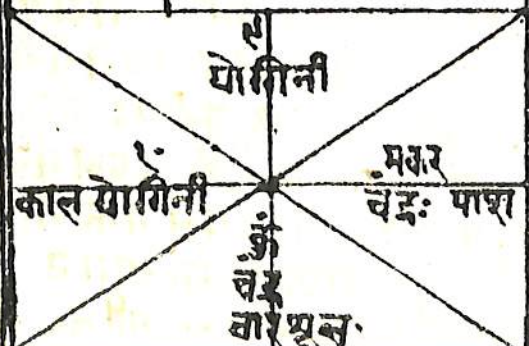 योगिनी
काल योगिनी
मकर
चंद्रः पाश
कं
चंद्र
वार शूल